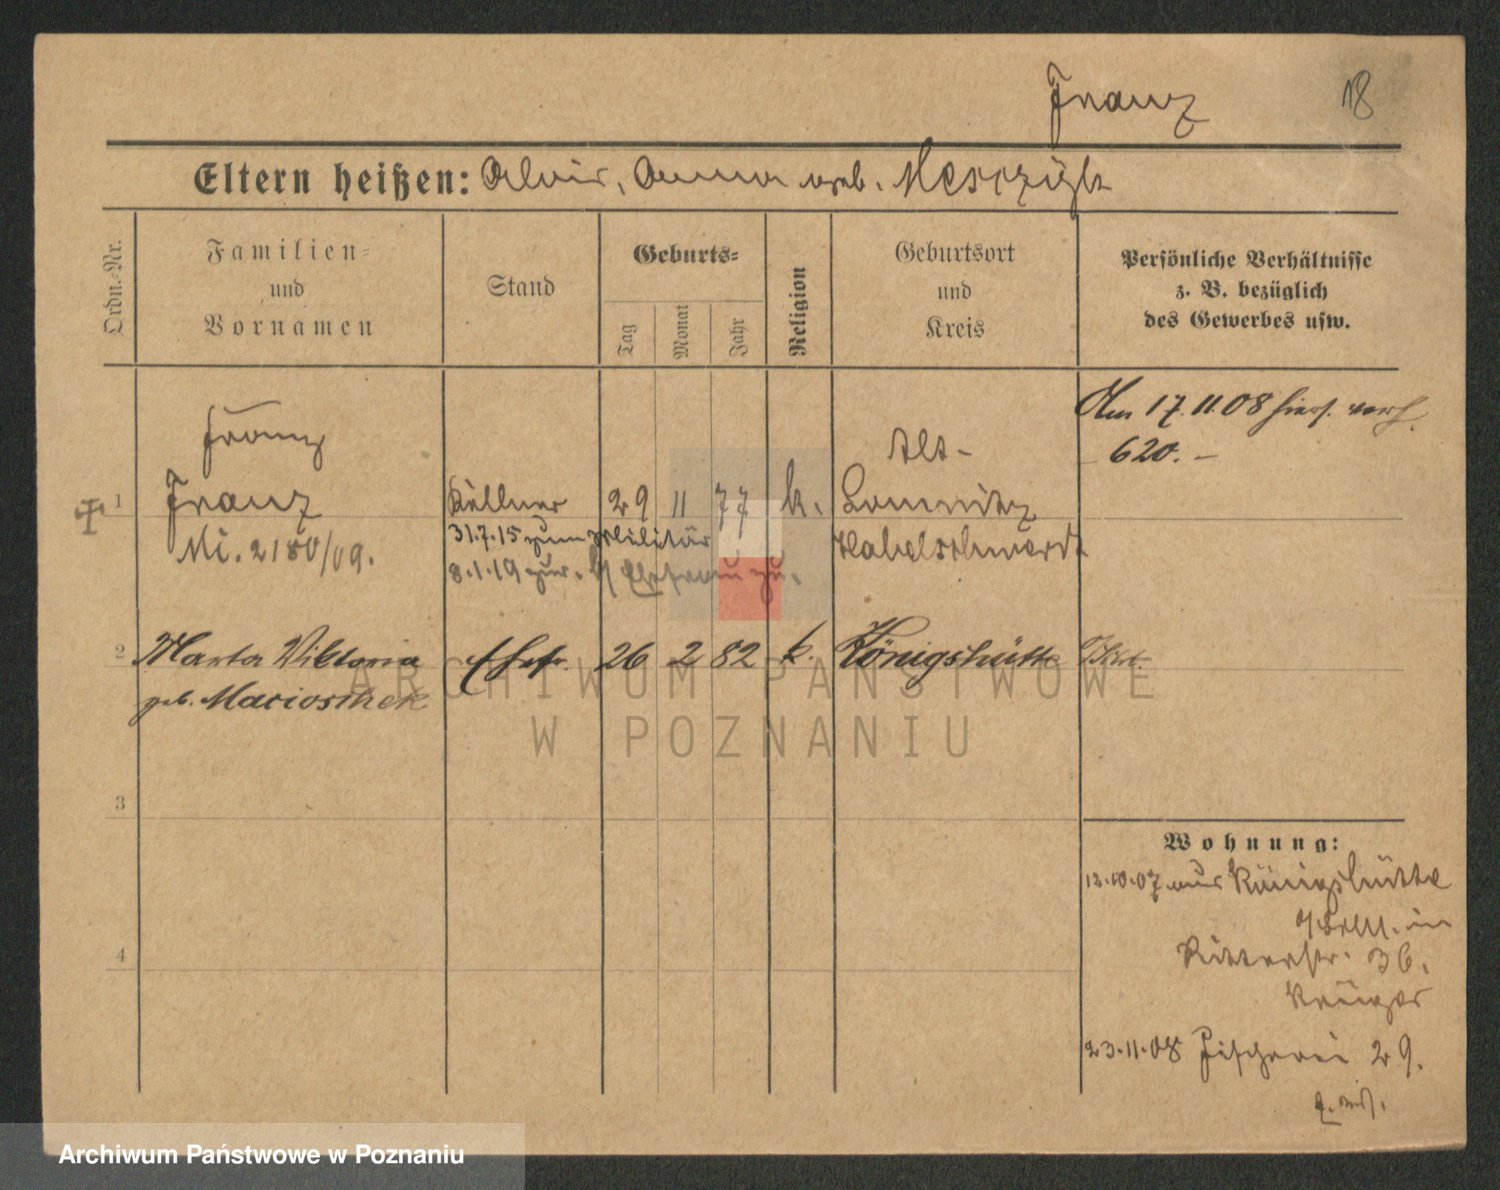 Franz
18
Eltern heißen: Alois, Anna geb.
Ordn.-Nr.
Familien-
und
Vornamen
Stand
Geburts-
Tag
Monat
Jahr
Religion
Geburtsort
und
Kreis
Persönliche Verhältnisse
z. B. bezüglich
des Gewerbes usw.
Am 17.11.08 hier verh.
620. –
Franz
Alt-
1 Franz Kellner 29 11 77 k. Lomnitz
Mi. 2180/09.
31.7.15 zum Militär
Habelschwerdt
8.1.19 zur.
2 Marta Viktoria Ehefr. 26 2 82 k. Königshütte
geb. Marioschek
3
4
Wohnung:
12.10.07 aus Königshütte
in
Ritterstr. 36.
Krüger
23.11.08 Fischerei 29.
ARCHIWUM PAŃSTWOWE
W POZNANIU
Archiwum Państwowe w Poznaniu